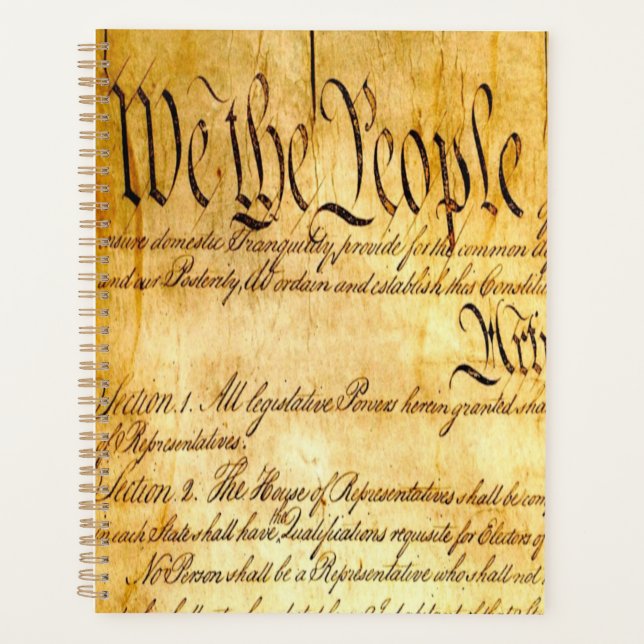 We the People
nsure domestic Tranquility, provide for the common d
and our Posterity, do ordain and establish this Constitu
Arti
Section. 1. All legislative Powers herein granted sha
of Representatives.
Section. 2. The House of Representatives shall be com
in each State shall have the Qualifications requisite for Electors of
No Person shall be a Representative who shall not